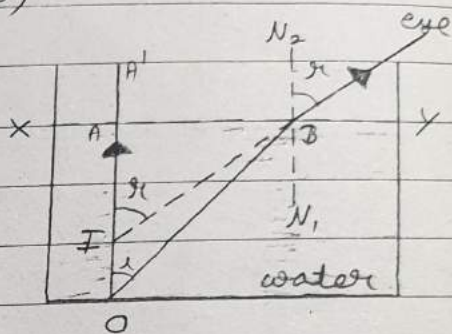 eye
N₂
A'
r
X A B Y
r
N₁
I
i
water
O